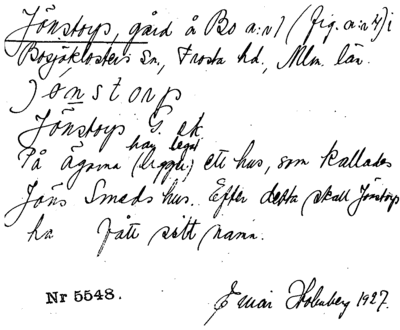 Jönstorps, gård å Bo a:nr 1 (fig. a:nr 4) i
Bosjöklosters Sn., Frosta hd., Mlm. län.
Jönstorp
Jönstorps G. ak
har legat
På ägorna (ligger) ett hus, som kallades
Jöns Smeds hus. Efter detta skall Jönstorp
ha fått sitt namn.
Nr 5548. Einar Holmberg 1927.